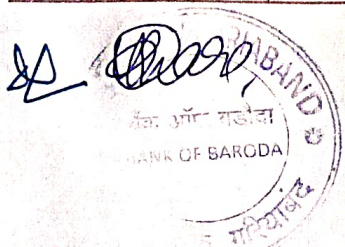 RIABAND
बैंक ऑफ बड़ौदा
BANK OF BARODA
गरियाबंद